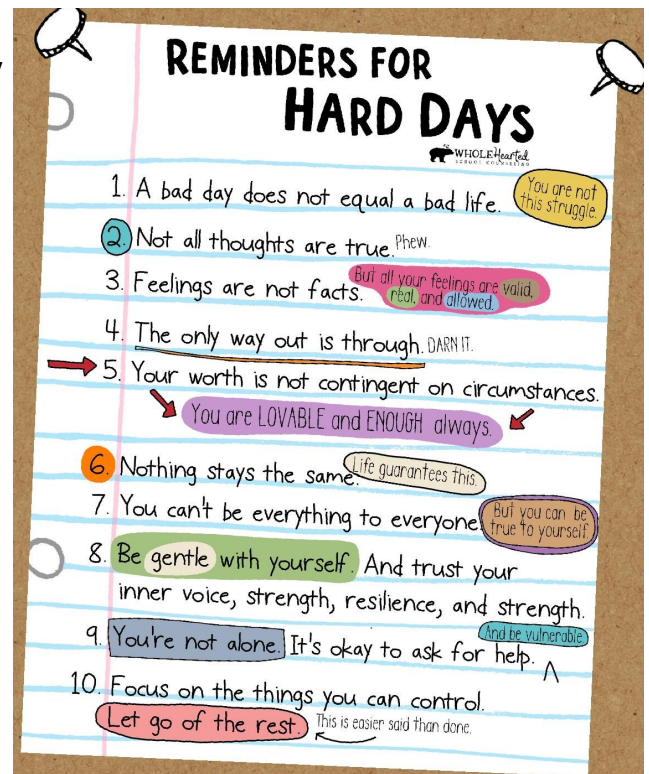 REMINDERS FOR
HARD DAYS
WHOLEHearted
SCHOOL COUNSELING
1. A bad day does not equal a bad life.
You are not
this struggle.
2. Not all thoughts are true. Phew.
3. Feelings are not facts.
But all your feelings are valid,
real, and allowed.
4. The only way out is through. DARN IT.
5. Your worth is not contingent on circumstances.
You are LOVABLE and ENOUGH always.
6. Nothing stays the same. Life guarantees this.
7. You can't be everything to everyone.
But you can be
true to yourself.
8. Be gentle with yourself. And trust your
inner voice, strength, resilience, and strength.
And be vulnerable
9. You're not alone. It's okay to ask for help.
10. Focus on the things you can control.
Let go of the rest. This is easier said than done.